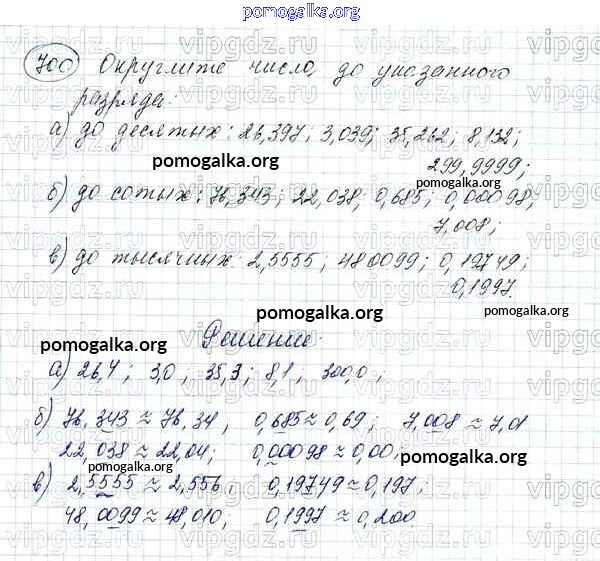 pomogalka.org
700 Округлите число, до указанного
разряда:
а) до десятых: 26,397; 3,039; 35,262; 8,132;
pomogalka.org
299,9999;
pomogalka.org
б) до сотых: 76,343; 22,038; 0,685; 0,00098;
7,008;
в) до тысячных: 2,5555; 480099; 0,19749;
0,1997.
pomogalka.org
Решение:
pomogalka.org
а) 26,4; 3,0, 35,3; 8,1, 300,0;
pomogalka.org
б) 76,343 ≈ 76,34, 0,685 ≈ 0,69; 7,008 ≈ 7,01
22,038 ≈ 22,04; 0,00098 ≈ 0,00;
pomogalka.org
pomogalka.org
в) 2,5555 ≈ 2,556, 0,19749 ≈ 0,197;
48,0099 ≈ 48,010, 0,1997 ≈ 0,200